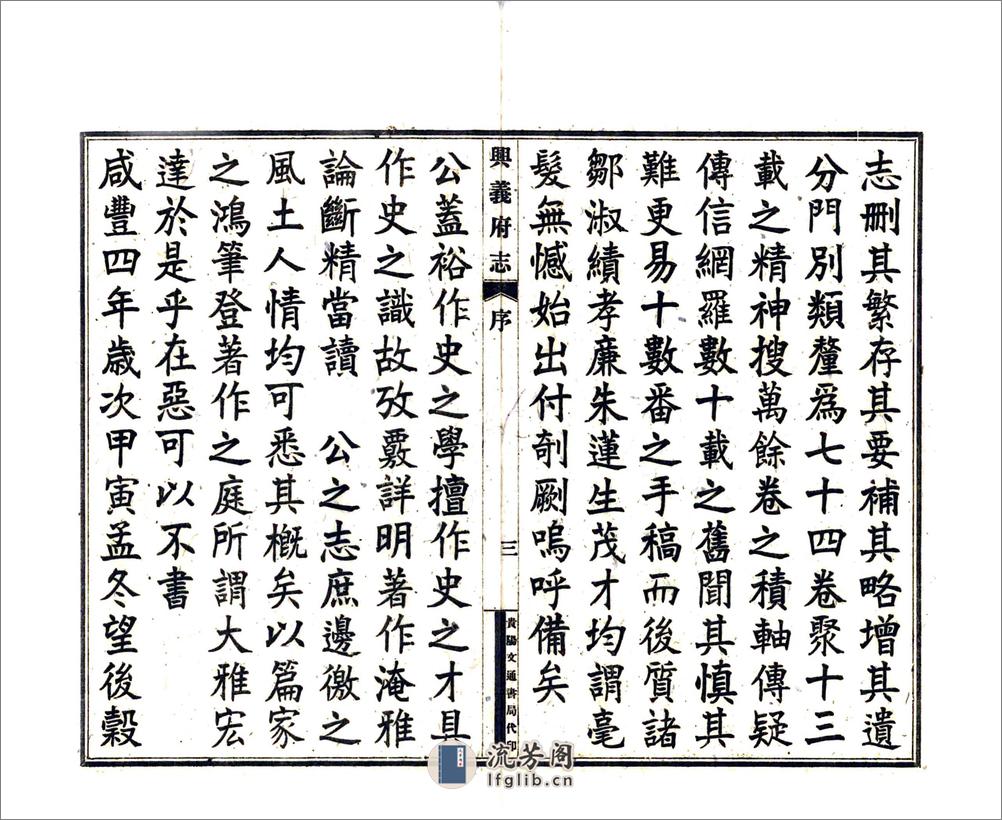 志删其繁存其要補其略增其遺
分門別類釐爲七十四卷聚十三
載之精神搜萬餘卷之積軸傳疑
傳信網羅數十載之舊聞其慎其
難更易十數番之手稿而後質諸
鄒淑績孝廉朱蓮生茂才均謂毫
髮無憾始出付剞劂嗚呼備矣
興義府志 序 三 貴陽文通書局代印
公蓋裕作史之學擅作史之才具
作史之識故攷覈詳明著作淹雅
論斷精當讀 公之志庶邊徼之
風土人情均可悉其概矣以篇家
之鴻筆登著作之庭所謂大雅宏
達於是乎在惡可以不書
咸豐四年歲次甲寅孟冬望後穀
流芳阁
lfglib.cn